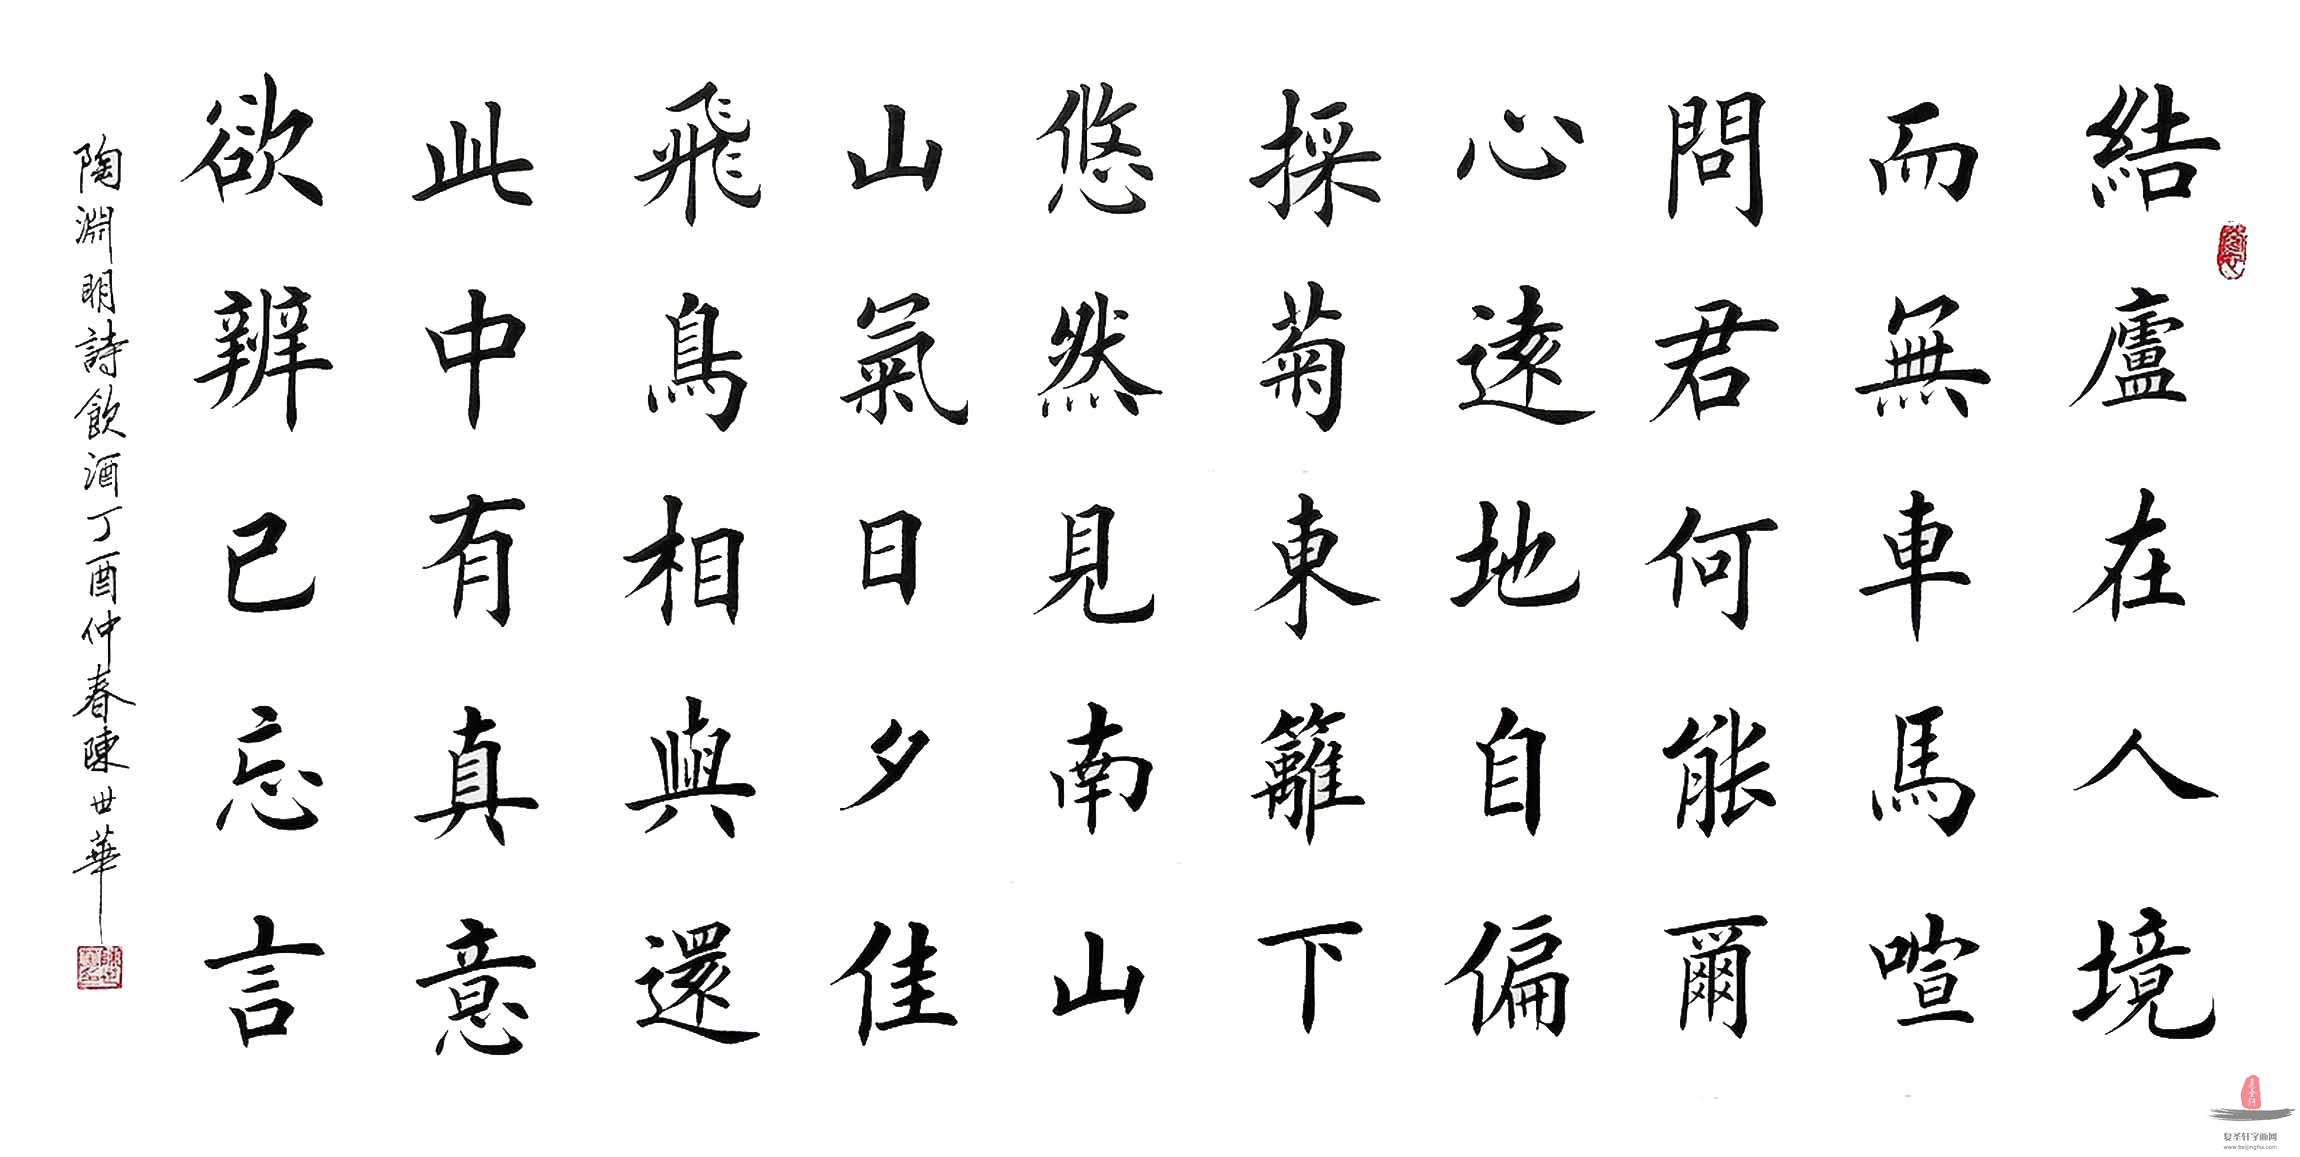 結廬在人境
而無車馬喧
問君何能爾
心遠地自偏
採菊東籬下
悠然見南山
山氣日夕佳
飛鳥相與還
此中有真意
欲辨已忘言
陶淵明詩飲酒丁酉仲春陳世華
复圣轩字画网
www.beijingfsx.com